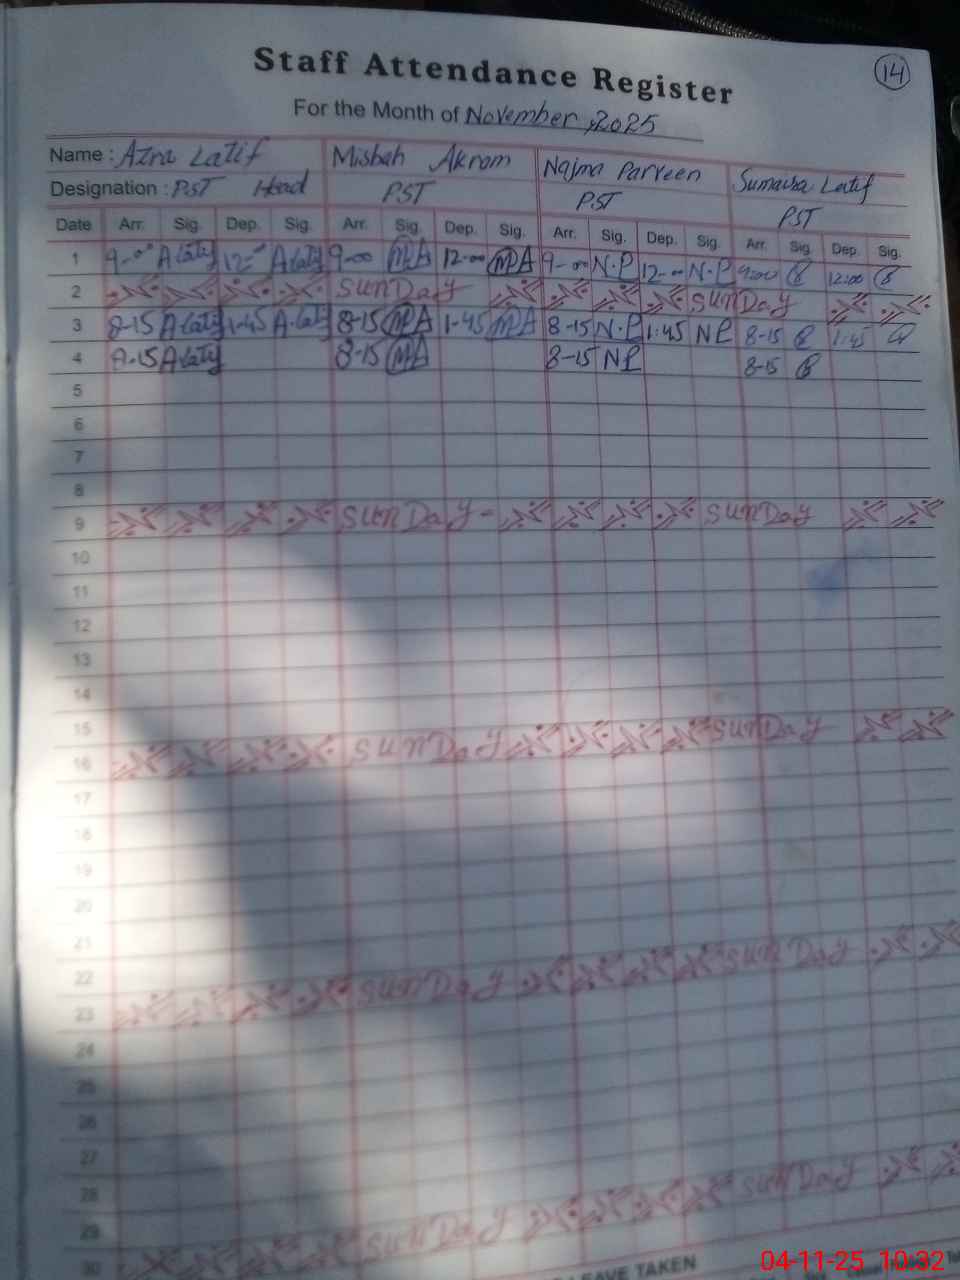 14
Staff Attendance Register
For the Month of November, 2025
Name : Azra Latif Misbah Akram Najma Parveen Sumaira Latif
Designation : PST Head PST PST PST
Date Arr. Sig. Dep. Sig. Arr. Sig. Dep. Sig. Arr. Sig. Dep. Sig. Arr. Sig. Dep. Sig.
1 9-00 A Latif 12-00 A Latif 9-00 MA 12-00 MA 9-00 N.P 12-00 N.P 9:00 12:00
2 SUNDay SUNDay
3 8-15 A Latif 1-45 A.Latif 8-15 MA 1-45 MA 8-15 N.P 1:45 NP 8-15 1:45
4 8-15 A Latif 8-15 MA 8-15 NP 8-15
5
6
7
8
9 SUNDay- SUNDay
10
11
12
13
14
15
16 SUNDay SUNDay
17
18
19
20
21
22
23 SUNDay SUNDay
24
25
26
27
28
29
30 SUNDay SUNDay
LEAVE TAKEN
04-11-25 10:32